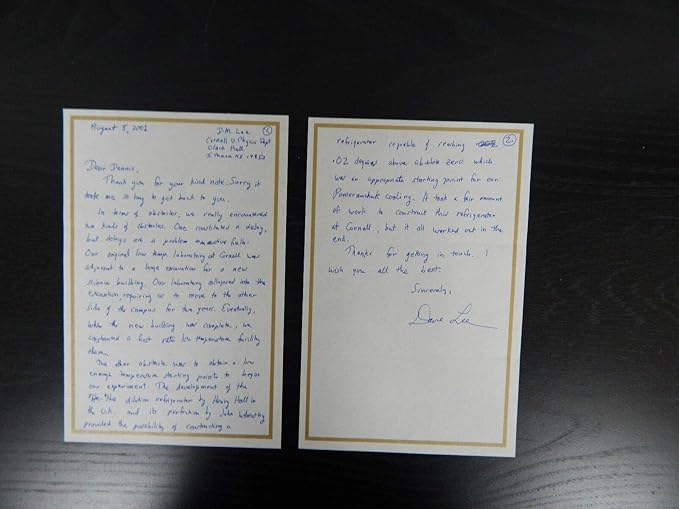 August 5, 2001
D.M. Lee
1
Cornell U Physics Dept
Clark Hall
Ithaca NY 14853
Dear Dennis,
Thank you for your kind note. Sorry it
took me so long to get back to you.
In terms of obstacles, we really encountered
two kinds of obstacles. One constituted a delay,
but delays are a problem in active fields.
Our original low temp. laboratory at Cornell was
adjacent to a large excavation for a new
science building. Our laboratory collapsed into the
excavation requiring us to move to the other
side of the campus for two years. Eventually,
when the new building was complete, we
constructed a first rate low temperature facility
there.
The other obstacle was to obtain a low
enough temperature starting point to begin
our experiment. The development of the
the dilution refrigerator by Henry Hall in
the U.K. and its perfection by John Wheatley
provided the possibility of constructing a
2
refrigerator capable of reaching
.02 degrees above absolute zero which
was an appropriate starting point for our
Pomeranchuk cooling. It took a fair amount
of work to construct this refrigerator
at Cornell, but it all worked out in the
end.
Thanks for getting in touch. I
wish you all the best.
Sincerely,
Dave Lee